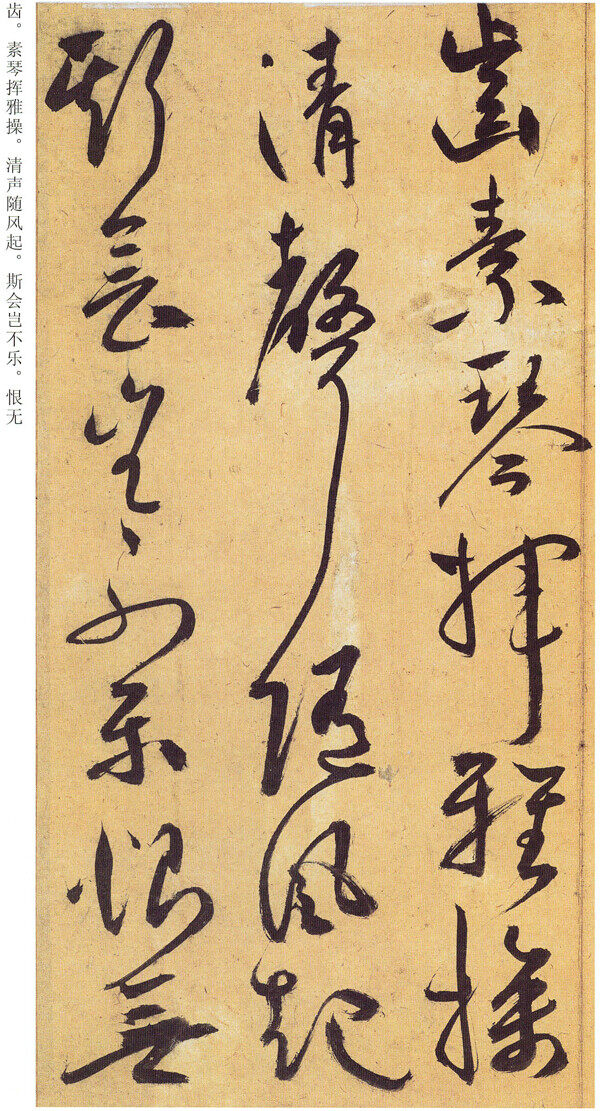 齿。素琴挥雅操。清声随风起。斯会岂不乐。恨无
齿素琴挥雅操
清聲随风起
斯会岂不乐恨無